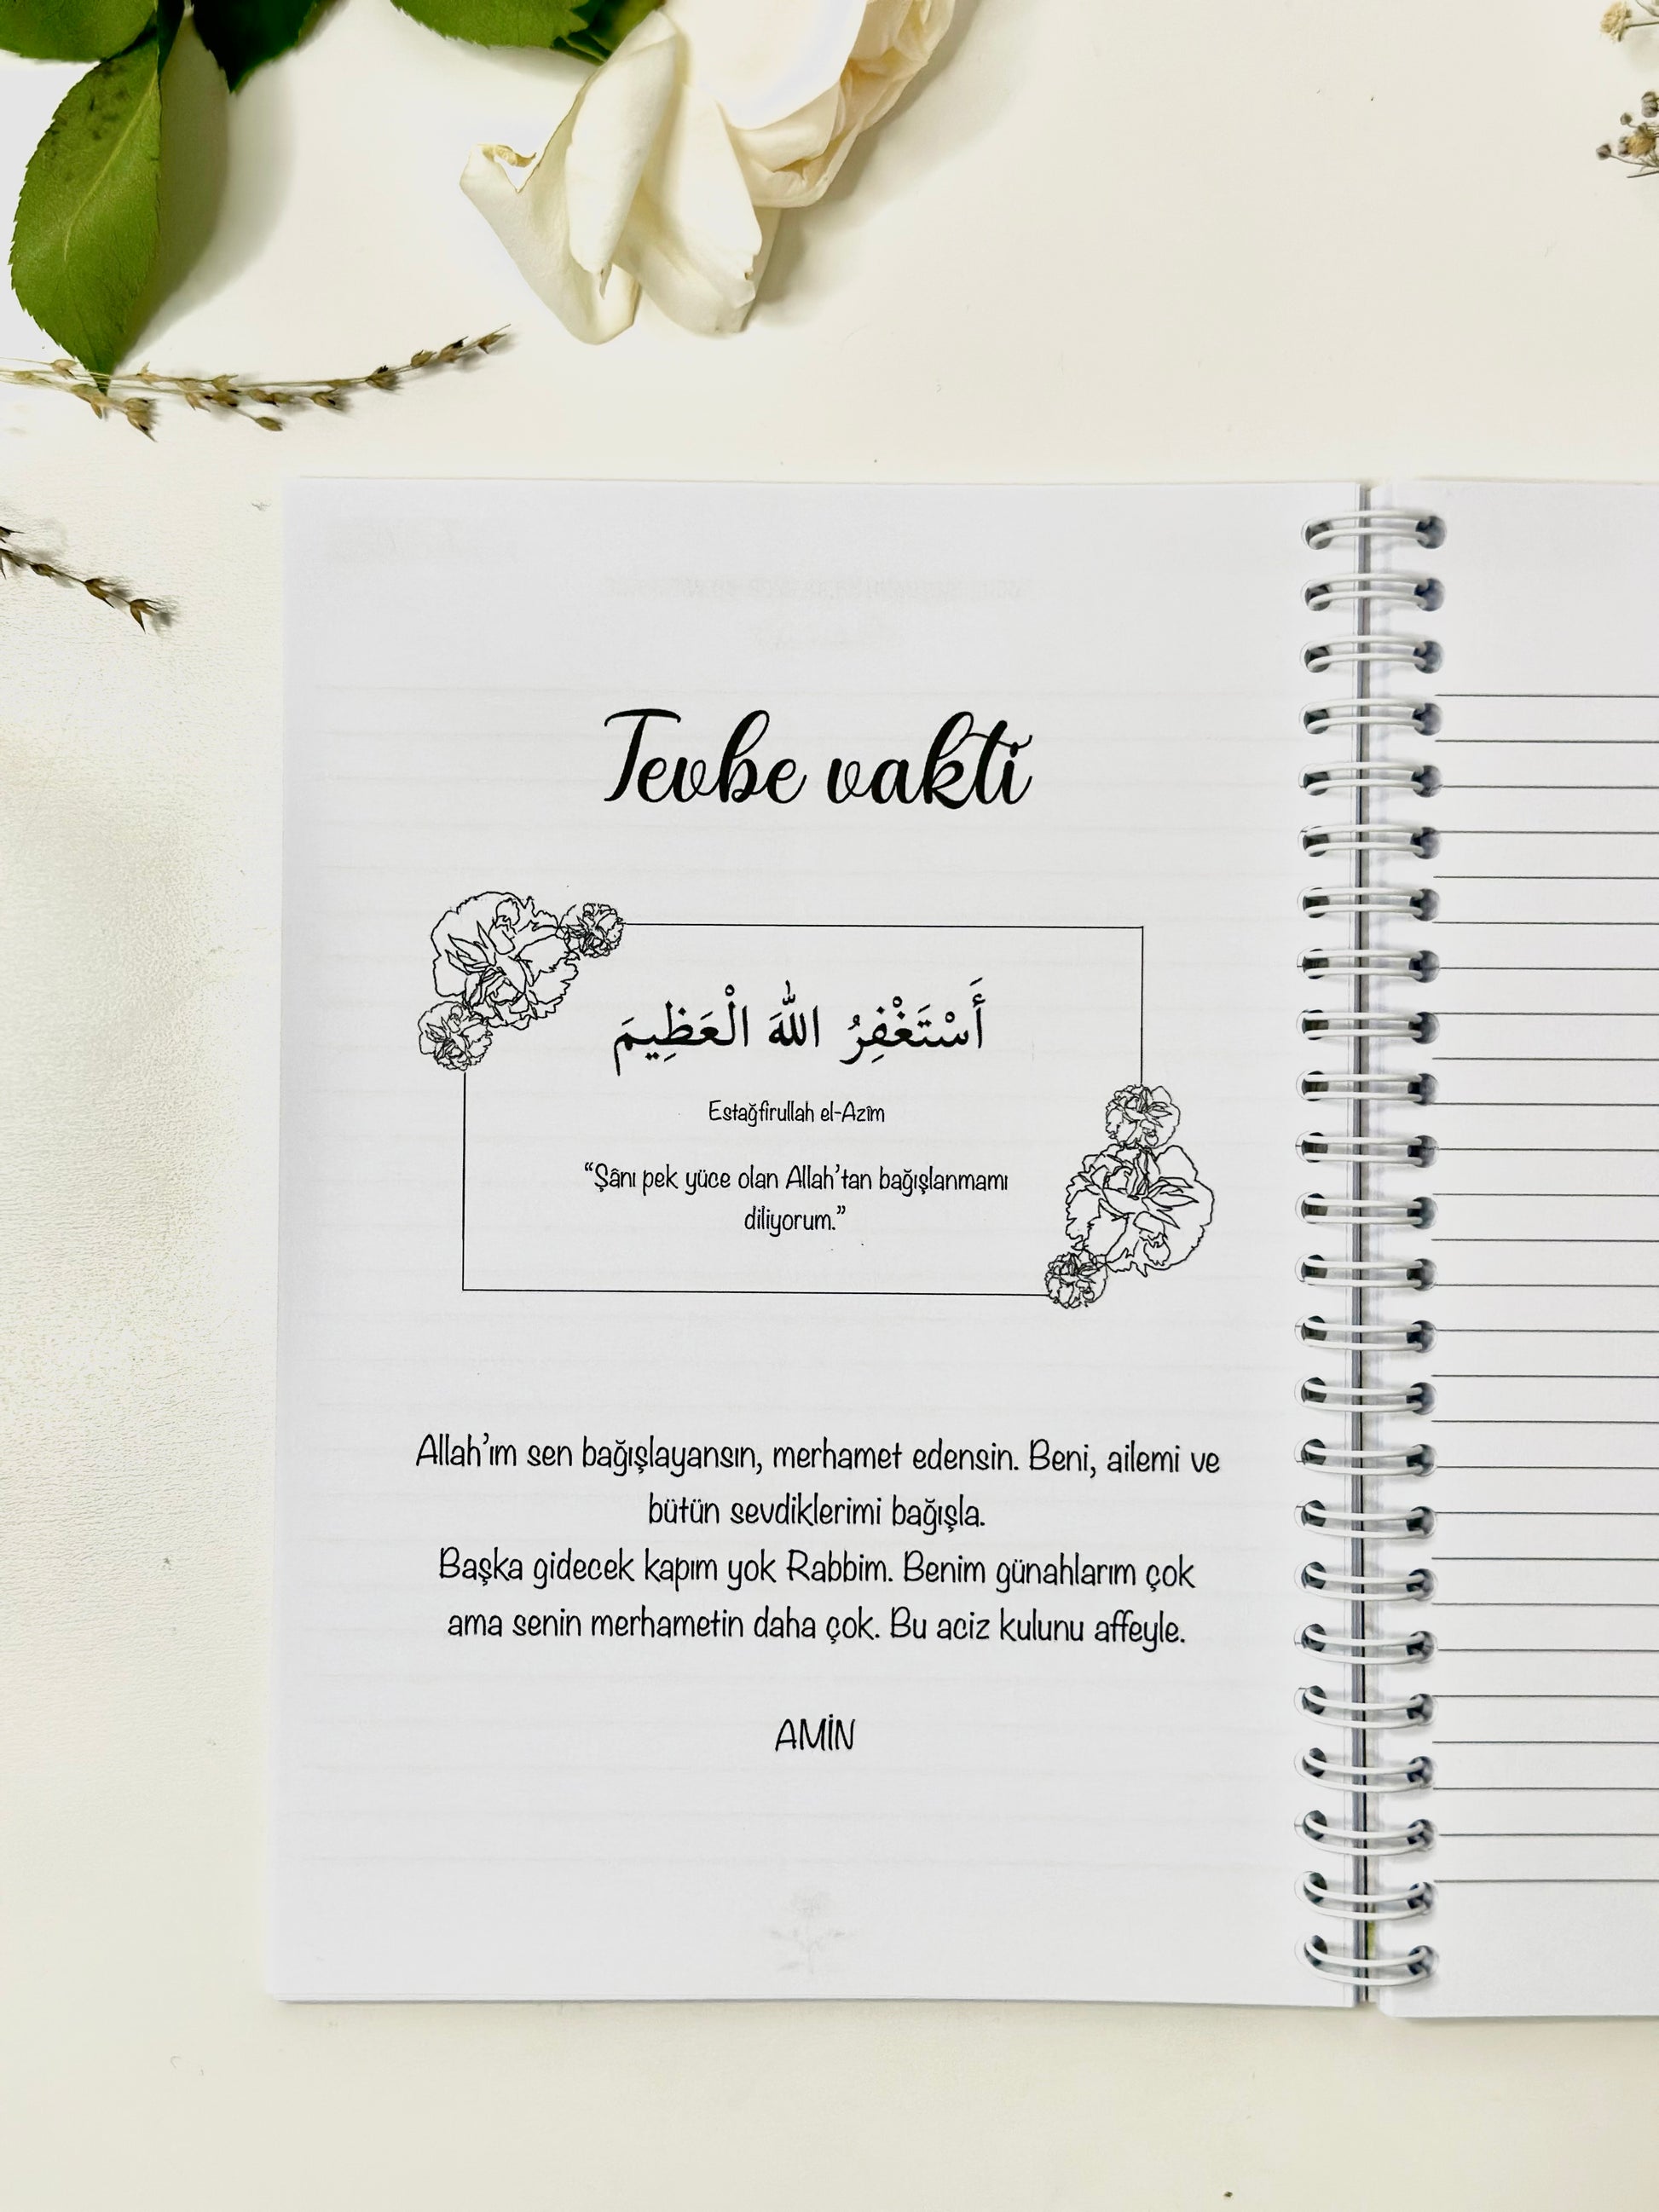 Tevbe vakti
أَسْتَغْفِرُ اللهَ الْعَظِيمَ
Estağfirullah el-Azîm
“Şânı pek yüce olan Allah’tan bağışlanmamı
diliyorum.”
Allah’ım sen bağışlayansın, merhamet edensin. Beni, ailemi ve
bütün sevdiklerimi bağışla.
Başka gidecek kapım yok Rabbim. Benim günahlarım çok
ama senin merhametin daha çok. Bu aciz kulunu affeyle.
AMİN